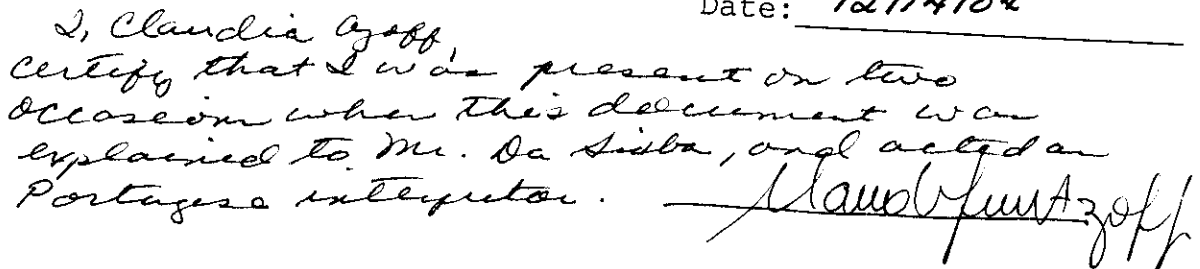 Date: 12/14/02
I, Claudia Azoff,
certify that I was present on two
occasion when this document was
explained to Mr. Da Silba, and acted as
Portugese interpretor.
Azoff